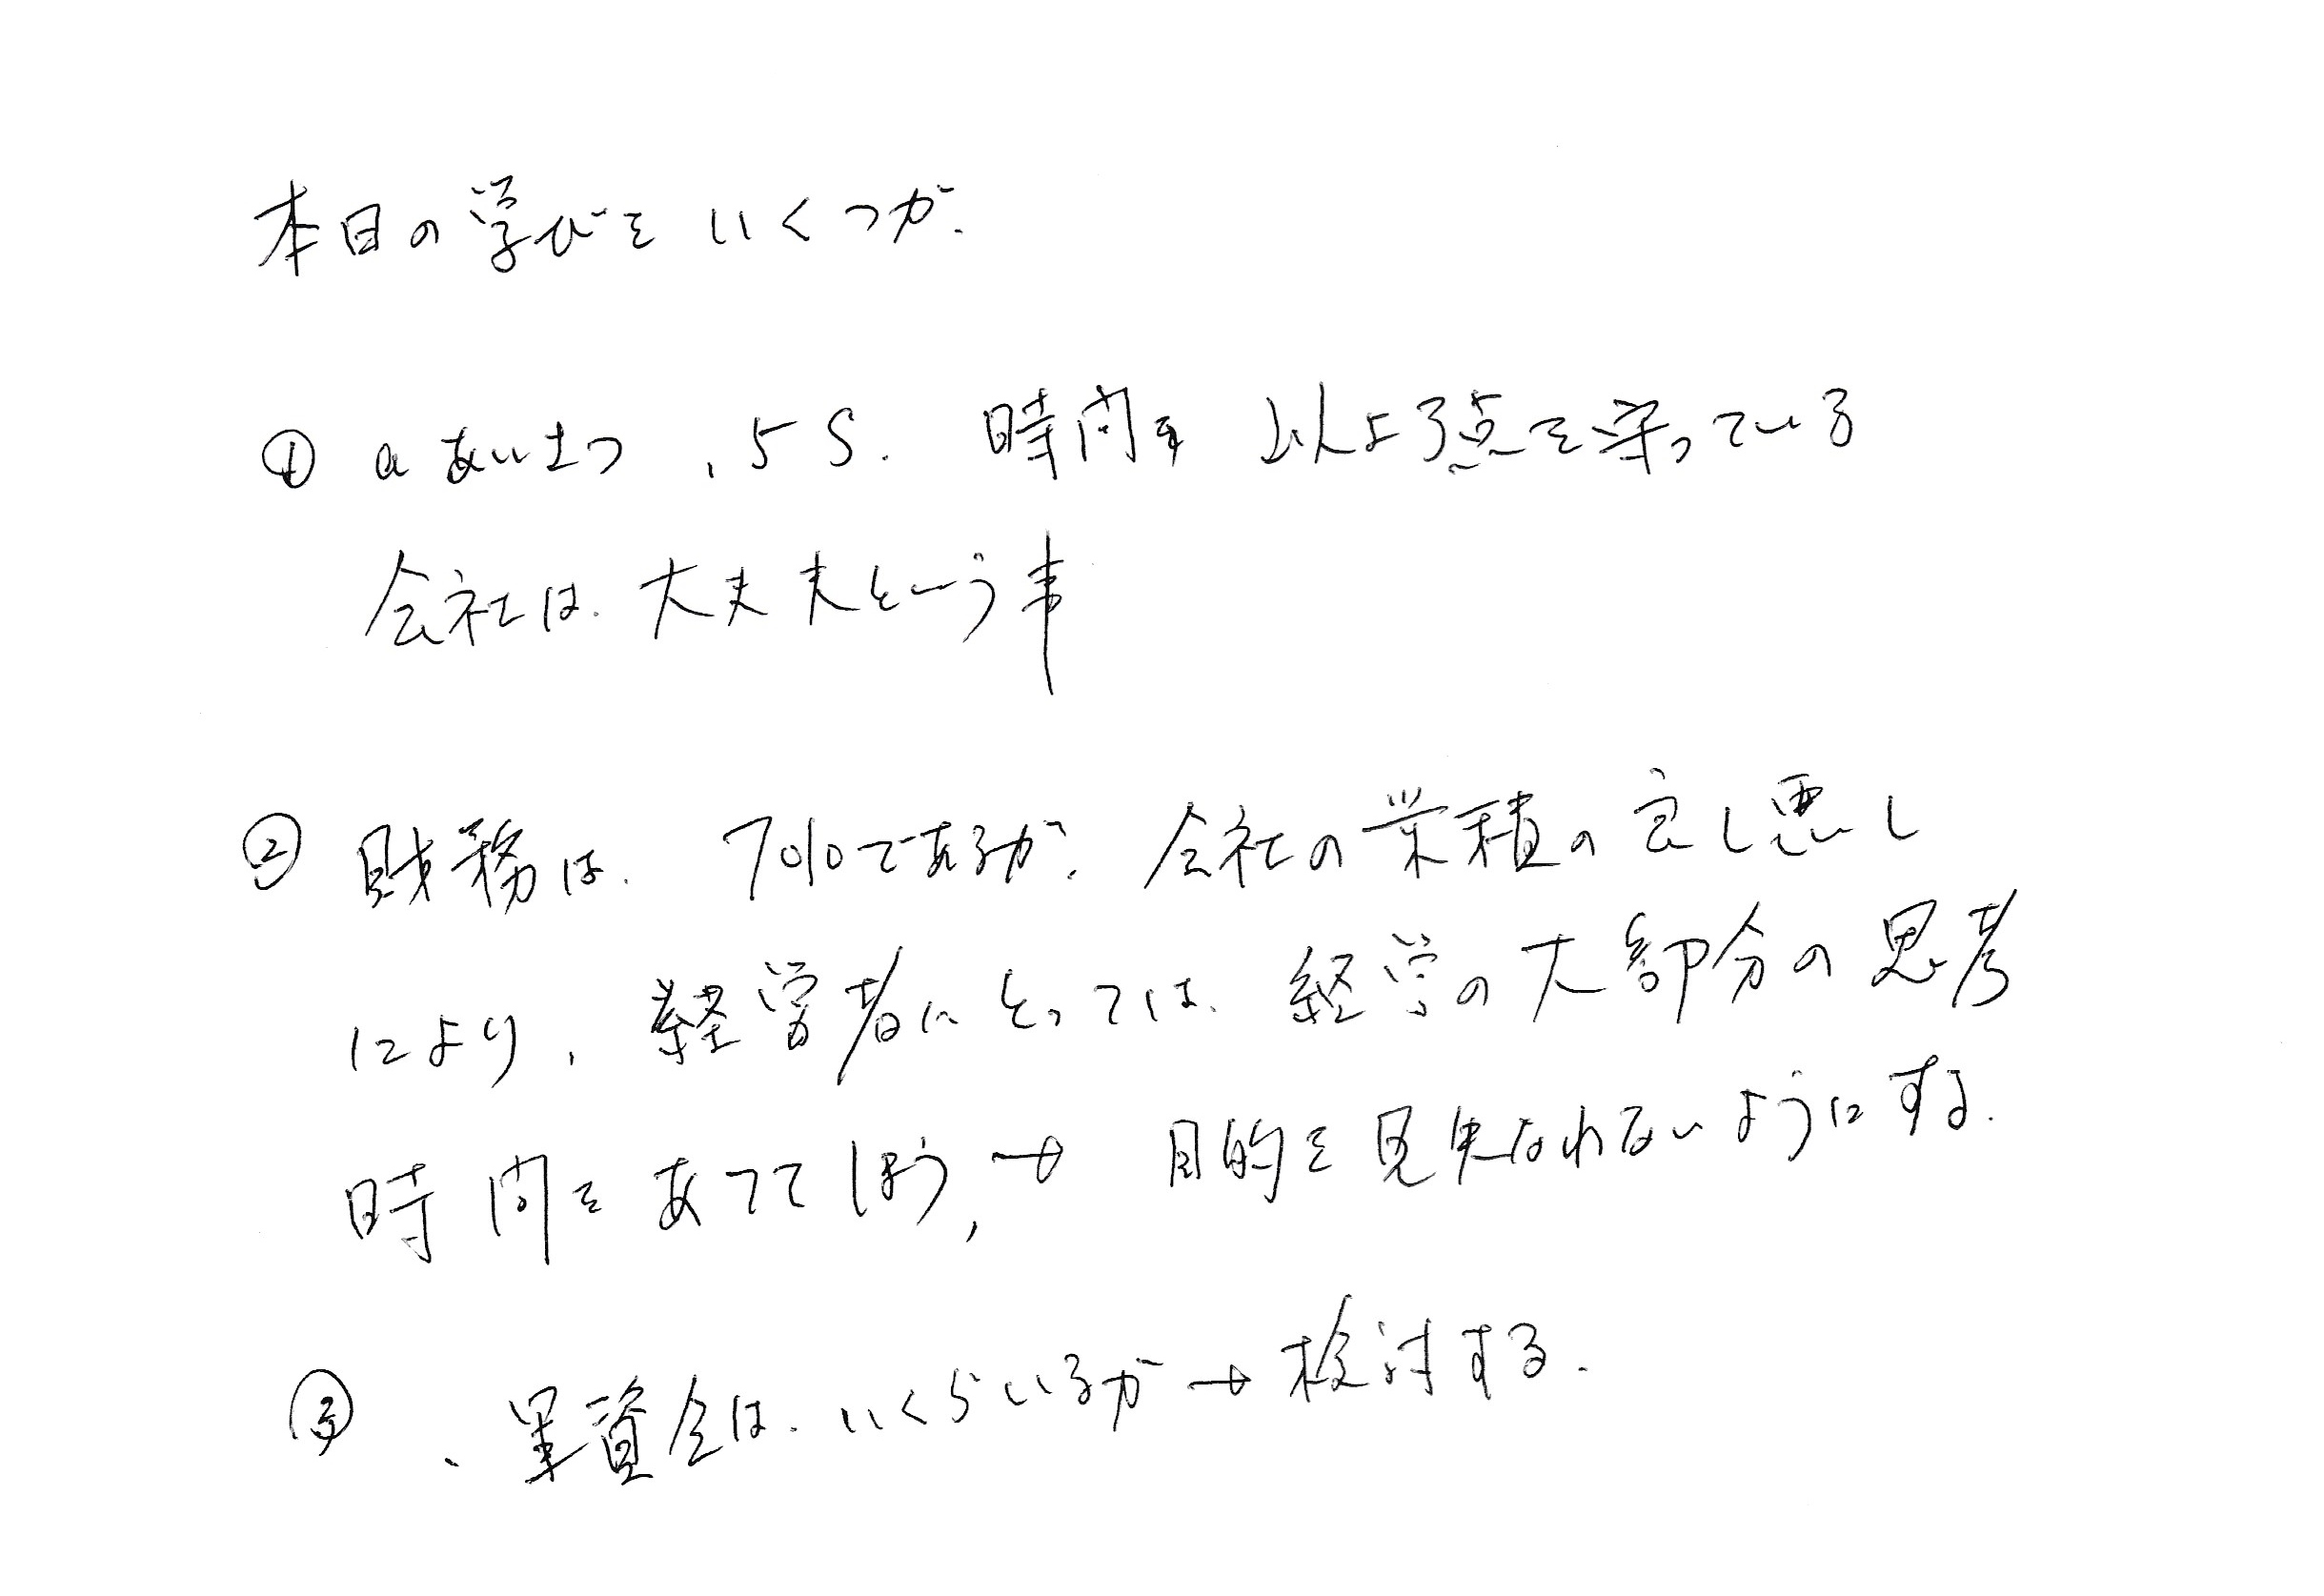 本日の学びをいくつか.
① a あいさつ、5S. 時間を 以上3点を守っている
会社は. 大丈夫という事
② 財務は. 7%であるが. 会社の業績の良し悪し
により、経営者にとっては. 経営の大部分の思考
時間をあててしまう, → 目的を見失なわれないようにする.
③ 、 資金は. いくらいるか → 検討する.